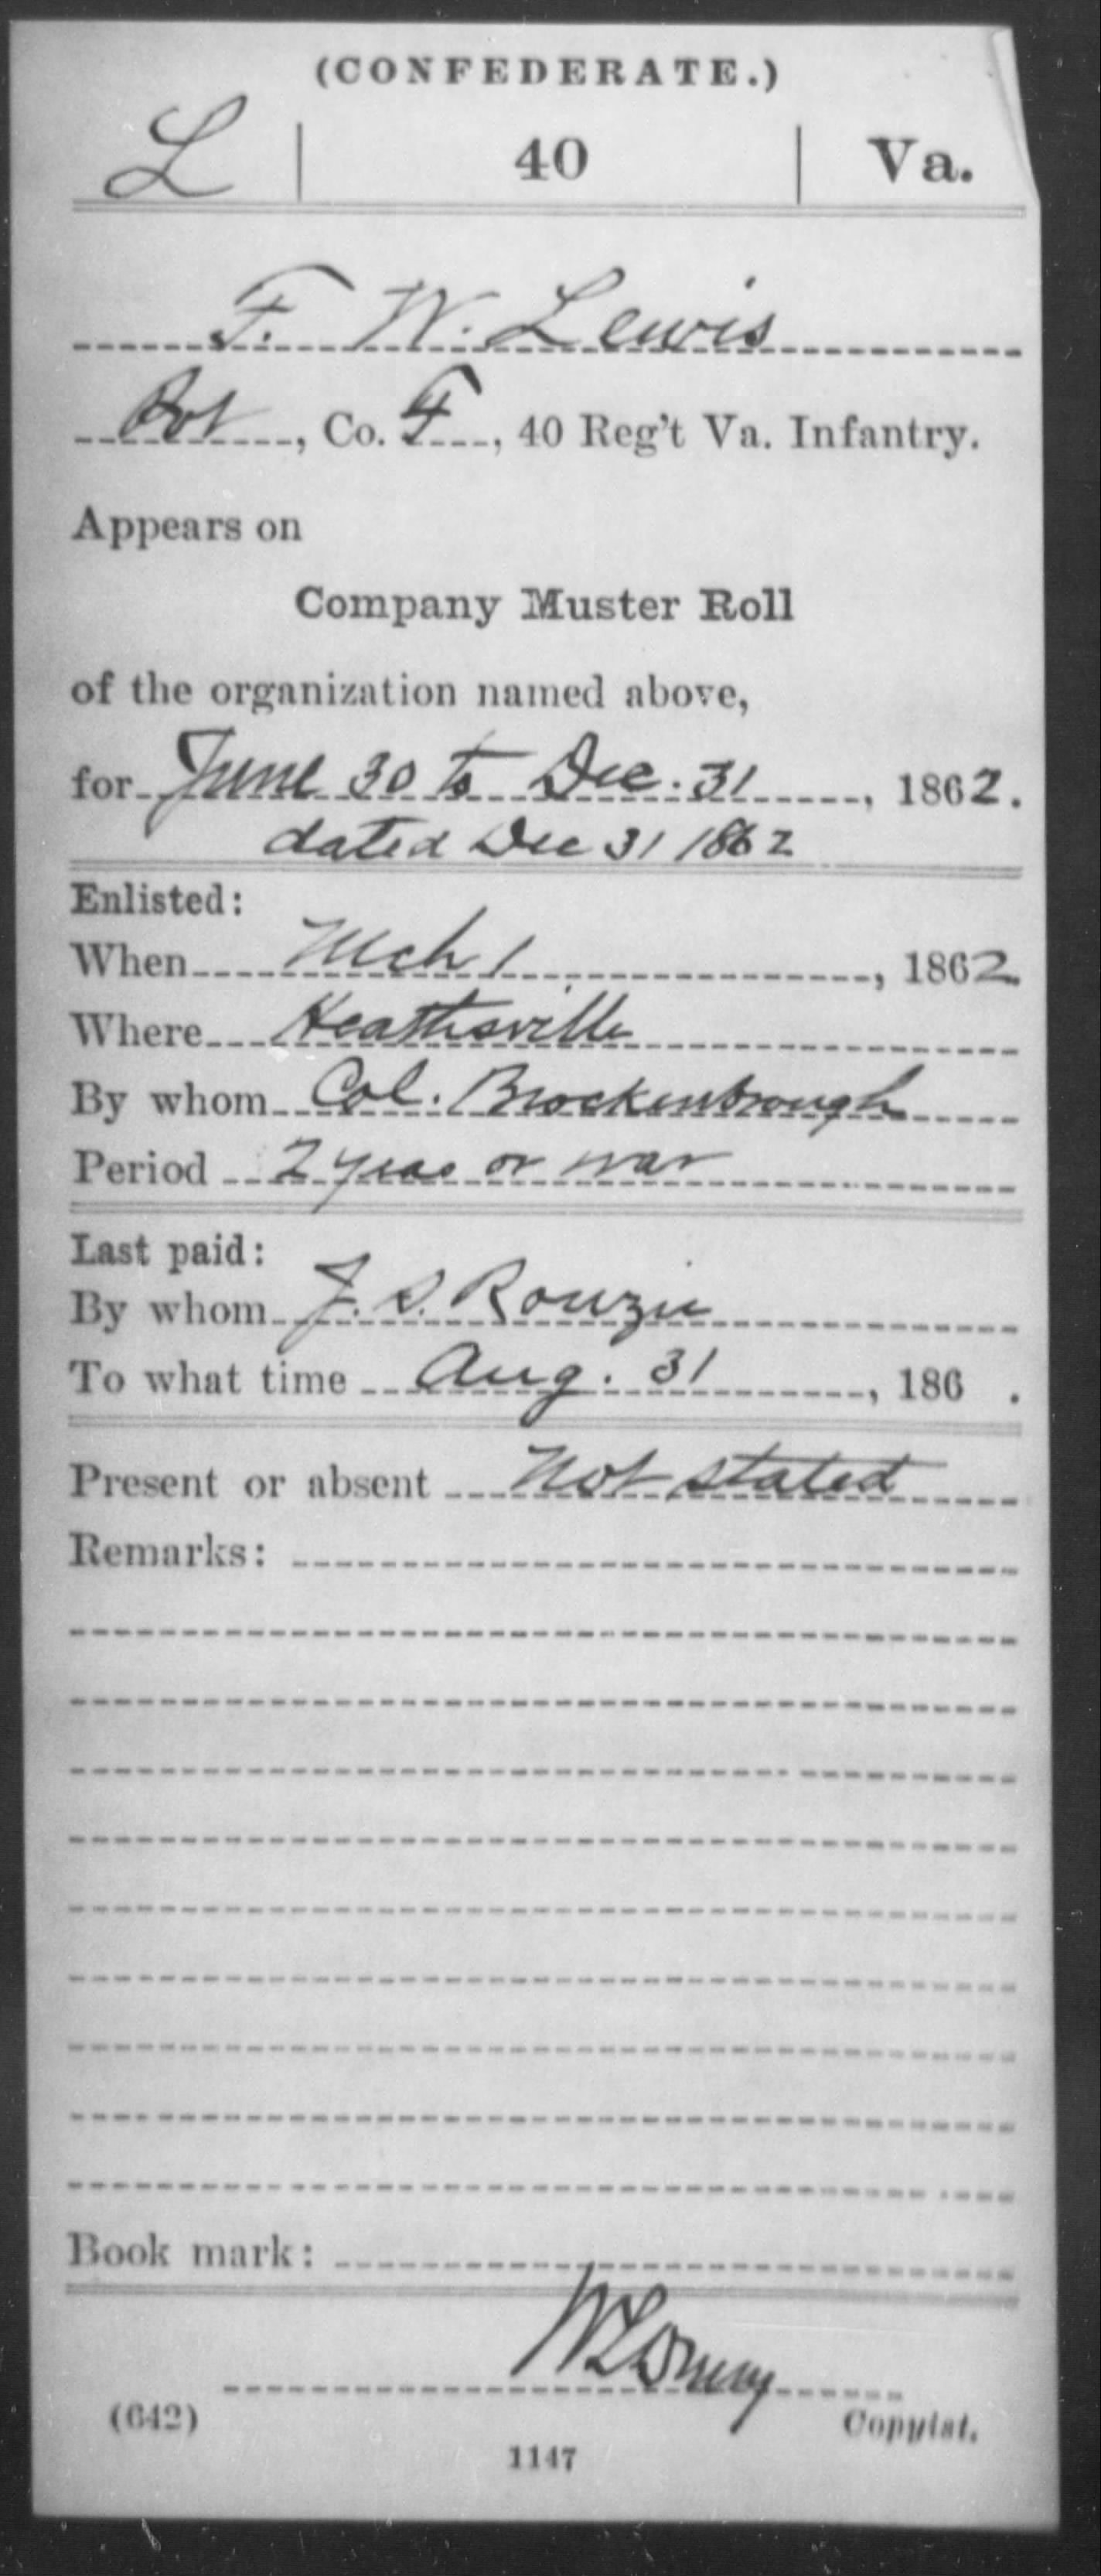 (CONFEDERATE.)
L | 40 | Va.
F. W. Lewis
Pvt, Co. F, 40 Reg't Va. Infantry.
Appears on
Company Muster Roll
of the organization named above,
for June 30 to Dec. 31, 1862.
dated Dec 31 1862
Enlisted:
When Mch 1, 1862.
Where Heathsville
By whom Col. Brockenbrough
Period 2 years or war
Last paid:
By whom J. S. Rouzie
To what time Aug. 31, 186 .
Present or absent Not stated
Remarks:
Book mark:
(642)
Copyist.
1147